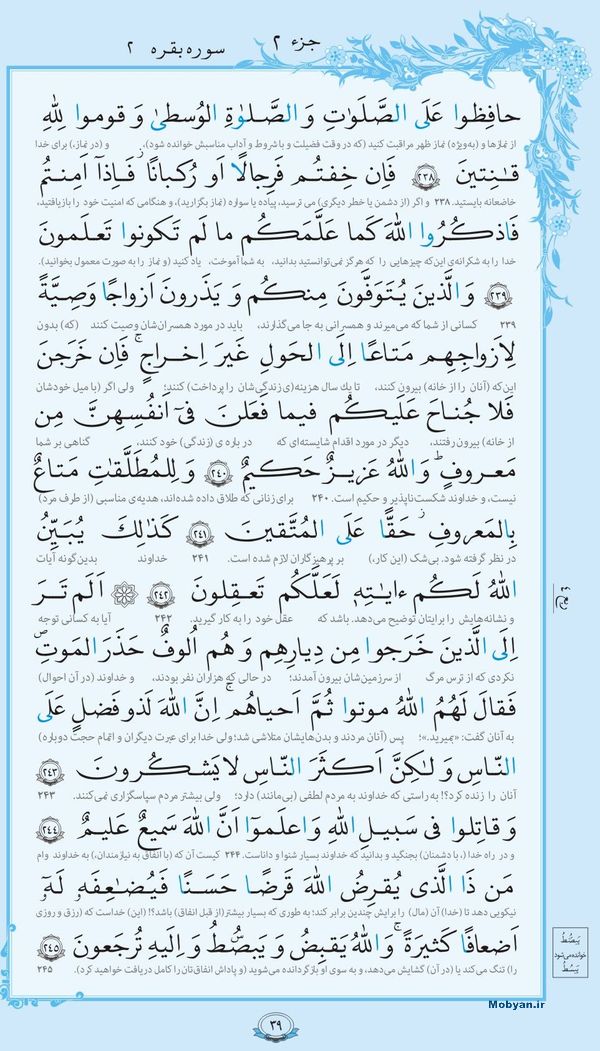 جزء ۲
سوره بقره ۲
حافِظوا عَلَى الصَّلَوٰتِ وَ الصَّلوٰةِ الوُسطىٰ وَ قوموا لِلّٰهِ
از نمازها و (به‌ویژه) نماز ظهر مراقبت کنید (که در وقت فضیلت و با شروط و آداب مناسبش خوانده شود)، و (در نماز،) برای خدا
قٰنِتينَ ﴿۲۳۸﴾ فَاِن خِفتُم فَرِجالًا اَو رُكبانًا ۖ فَاِذآ اَمِنتُم
خاضعانه بایستید. ۲۳۸ و اگر (از دشمن یا خطر دیگری) می ترسید، پیاده یا سواره (نماز بگزارید)، و هنگامی که امنیت خود را بازیافتید،
فَاذكُرُوا اللهَ كَما عَلَّمَكُم ما لَم تَكونوا تَعلَمونَ
خدا را به شکرانه‌ی این‌که چیزهایی را که هرگز نمی‌توانستید بدانید، به شما آموخت، یاد کنید (و نماز را به صورت معمول بخوانید).
﴿۲۳۹﴾ وَ الَّذينَ يُتَوَفَّونَ مِنكُم وَ يَذَرونَ اَزواجًا وَصِيَّةً
۲۳۹ کسانی از شما که می‌میرند و همسرانی به جا می‌گذارند، باید در مورد همسران‌شان وصیت کنند (که) بدون
لِاَزواجِهِم مَتاعًا اِلَى الحَولِ غَيرَ اِخراجٍ ۚ فَاِن خَرَجنَ
این‌که (آنان را از خانه) بیرون کنند، تا یک سال هزینه(ی زندگی‌شان را پرداخت) کنند؛ ولی اگر (با میل خودشان
فَلا جُناحَ عَلَيكُم فيما فَعَلنَ فيٓ اَنفُسِهِنَّ مِن
از خانه) بیرون رفتند، دیگر در مورد اقدام شایسته‌ای که در باره ی (زندگی) خود کنند، گناهی بر شما
مَعروفٍ ۗ وَ اللهُ عَزيزٌ حَكيمٌ ﴿۲۴۰﴾ وَ لِلمُطَلَّقٰتِ مَتاعٌ
نیست، و خداوند شکست‌ناپذیر و حکیم است. ۲۴۰ برای زنانی که طلاق داده شده‌اند، هدیه‌ی مناسبی (از طرف مرد)
بِالمَعروفِ ۖ حَقًّا عَلَى المُتَّقينَ ﴿۲۴۱﴾ كَذٰلِكَ يُبَيِّنُ
در نظر گرفته شود. بی‌شک (این کار،) بر پرهیزگاران لازم شده است. ۲۴۱ خداوند بدین‌گونه آیات
اللهُ لَكُم ءاياتِهٖ لَعَلَّكُم تَعقِلونَ ﴿۲۴۲﴾ اَلَم تَرَ
و نشانه‌هایش را برایتان توضیح می‌دهد. باشد که عقل خود را به کار گیرید. ۲۴۲ آیا به کسانی توجه
اِلَى الَّذينَ خَرَجوا مِن دِيارِهِم وَ هُم اُلوفٌ حَذَرَ المَوتِ
نکردی که از ترس مرگ از سرزمین‌شان بیرون آمدند؛ در حالی که هزاران نفر بودند، و خداوند (در آن احوال)
فَقالَ لَهُمُ اللهُ موتوا ثُمَّ اَحياهُم ۚ اِنَّ اللهَ لَذو فَضلٍ عَلَى
به آنان گفت: «بمیرید.»؛ پس (آنان مردند و بدن‌هایشان متلاشی شد؛ ولی خدا برای عبرت دیگران و اتمام حجت دوباره)
النّاسِ وَ لٰكِنَّ اَكثَرَ النّاسِ لا يَشكُرونَ ﴿۲۴۳﴾
آنان را زنده کرد؟! به راستی که خداوند به مردم لطفی (بی‌مانند) دارد؛ ولی بیشتر مردم سپاسگزاری نمی‌کنند. ۲۴۳
وَ قاتِلوا في سَبيلِ اللهِ وَ اعلَموٓا اَنَّ اللهَ سَميعٌ عَليمٌ ﴿۲۴۴﴾
و در راه خدا (، با دشمنان) بجنگید و بدانید که خداوند بسیار شنوا و داناست. ۲۴۴ کیست آن که (با انفاق به نیازمندان،) به خداوند وام
مَن ذَا الَّذي يُقرِضُ اللهَ قَرضًا حَسَنًا فَيُضٰعِفَهٗ لَهٗٓ
نیکویی دهد تا (خدا) آن (مال) را برایش چندین برابر کند؛ به طوری که بسیار بیشتر (از قبل انفاق) باشد؟! (این) خداست که (رزق و روزی
اَضعافًا كَثيرَةً ۚ وَ اللهُ يَقبِضُ وَ يَبصُّطُ وَ اِلَيهِ تُرجَعونَ ﴿۲۴۵﴾
را) تنگ می‌کند یا (در آن) گشایش می‌دهد، و به سوی او بازگردانده می‌شوید (و پاداش انفاق‌تان را کامل دریافت خواهید کرد). ۲۴۵
يَبصُّطُ
خوانده می‌شود
يَبسُطُ
Mobyan.ir
۳۹